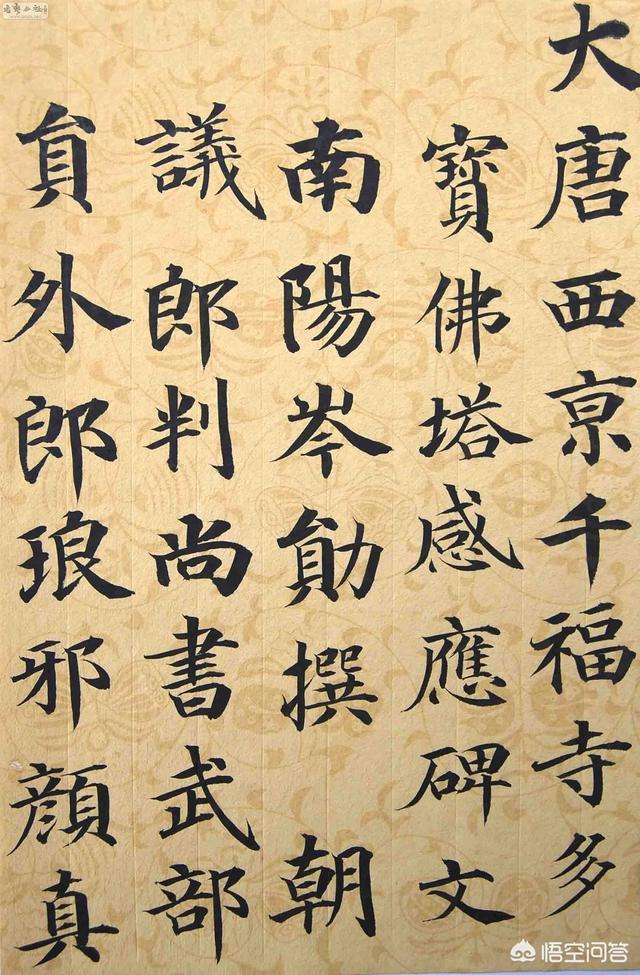 大唐西京千福寺多
寶佛塔感應碑文
南陽岑勛撰 朝
議郎判尚書武部
員外郎琅邪顏真
悟空问答